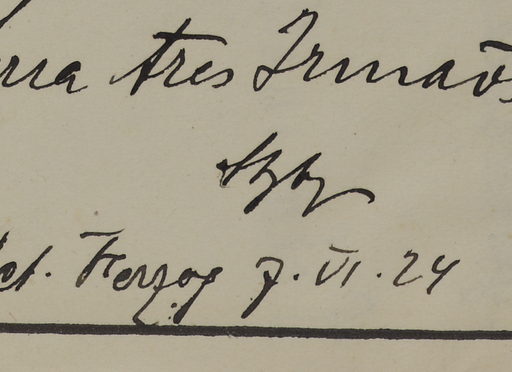 rra Tres Irmãos
et. Herzog 7. VI. 24